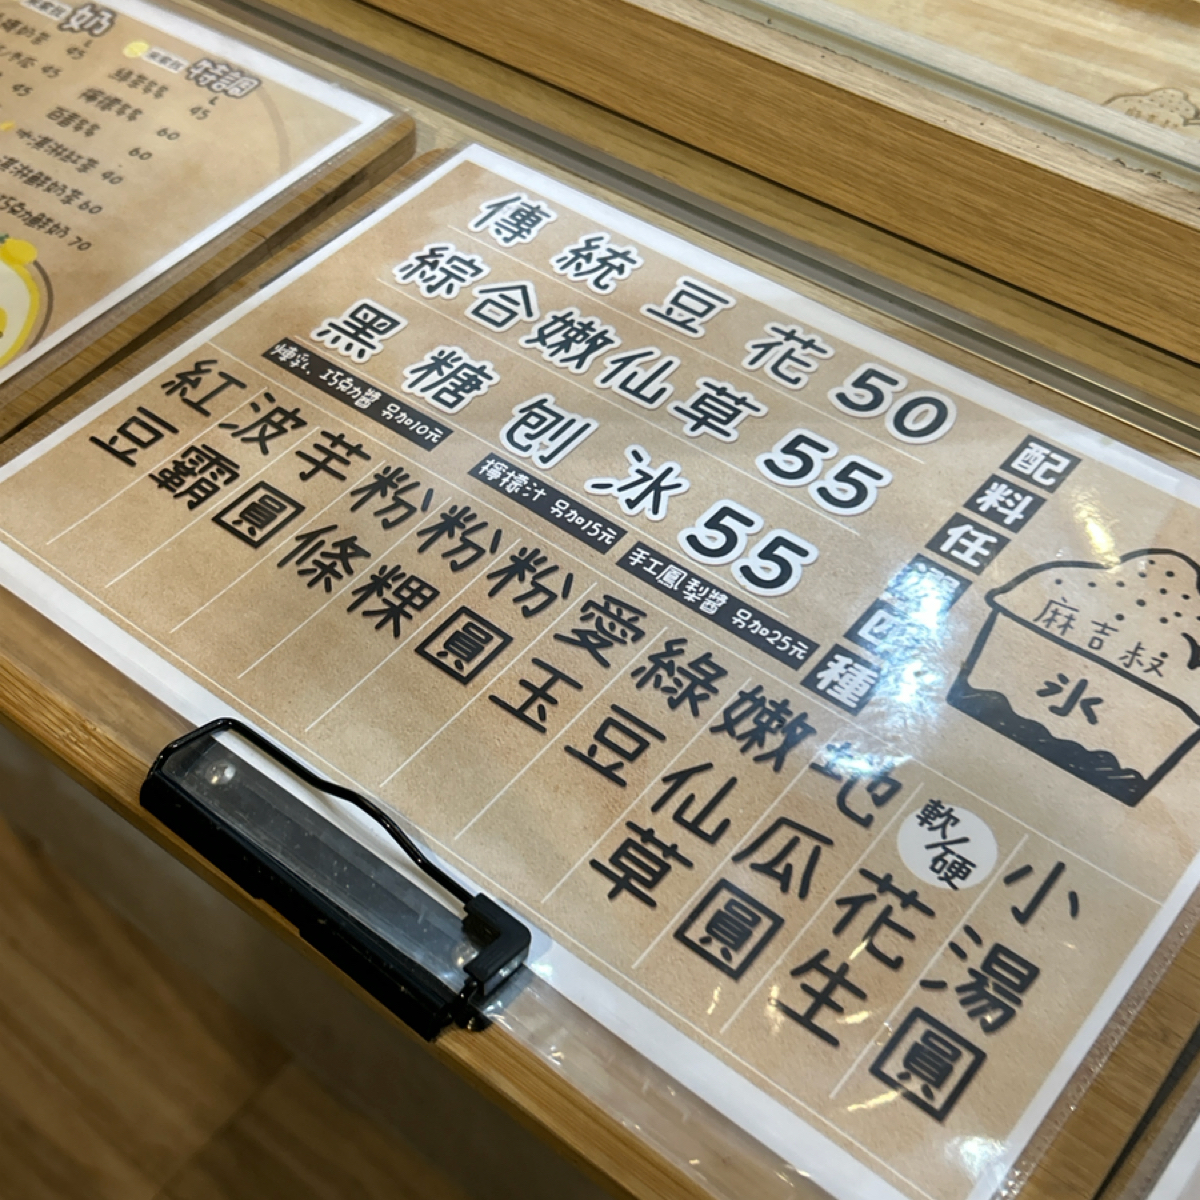 傳統豆花50
綜合嫩仙草55
黑糖刨冰55
煉乳、巧克力醬 另加10元
檸檬汁 另加15元
手工鳳梨醬 另加25元
配料任選四種
小湯圓
軟/硬花生
地瓜圓
嫩仙草
綠豆
愛玉
粉圓
粉粿
粉條
芋圓
波霸
紅豆
麻吉叔
冰
奶
特調
L
45
60
60
冰淇淋紅茶 40
冰淇淋鮮奶茶 60
巧克力鮮奶 70